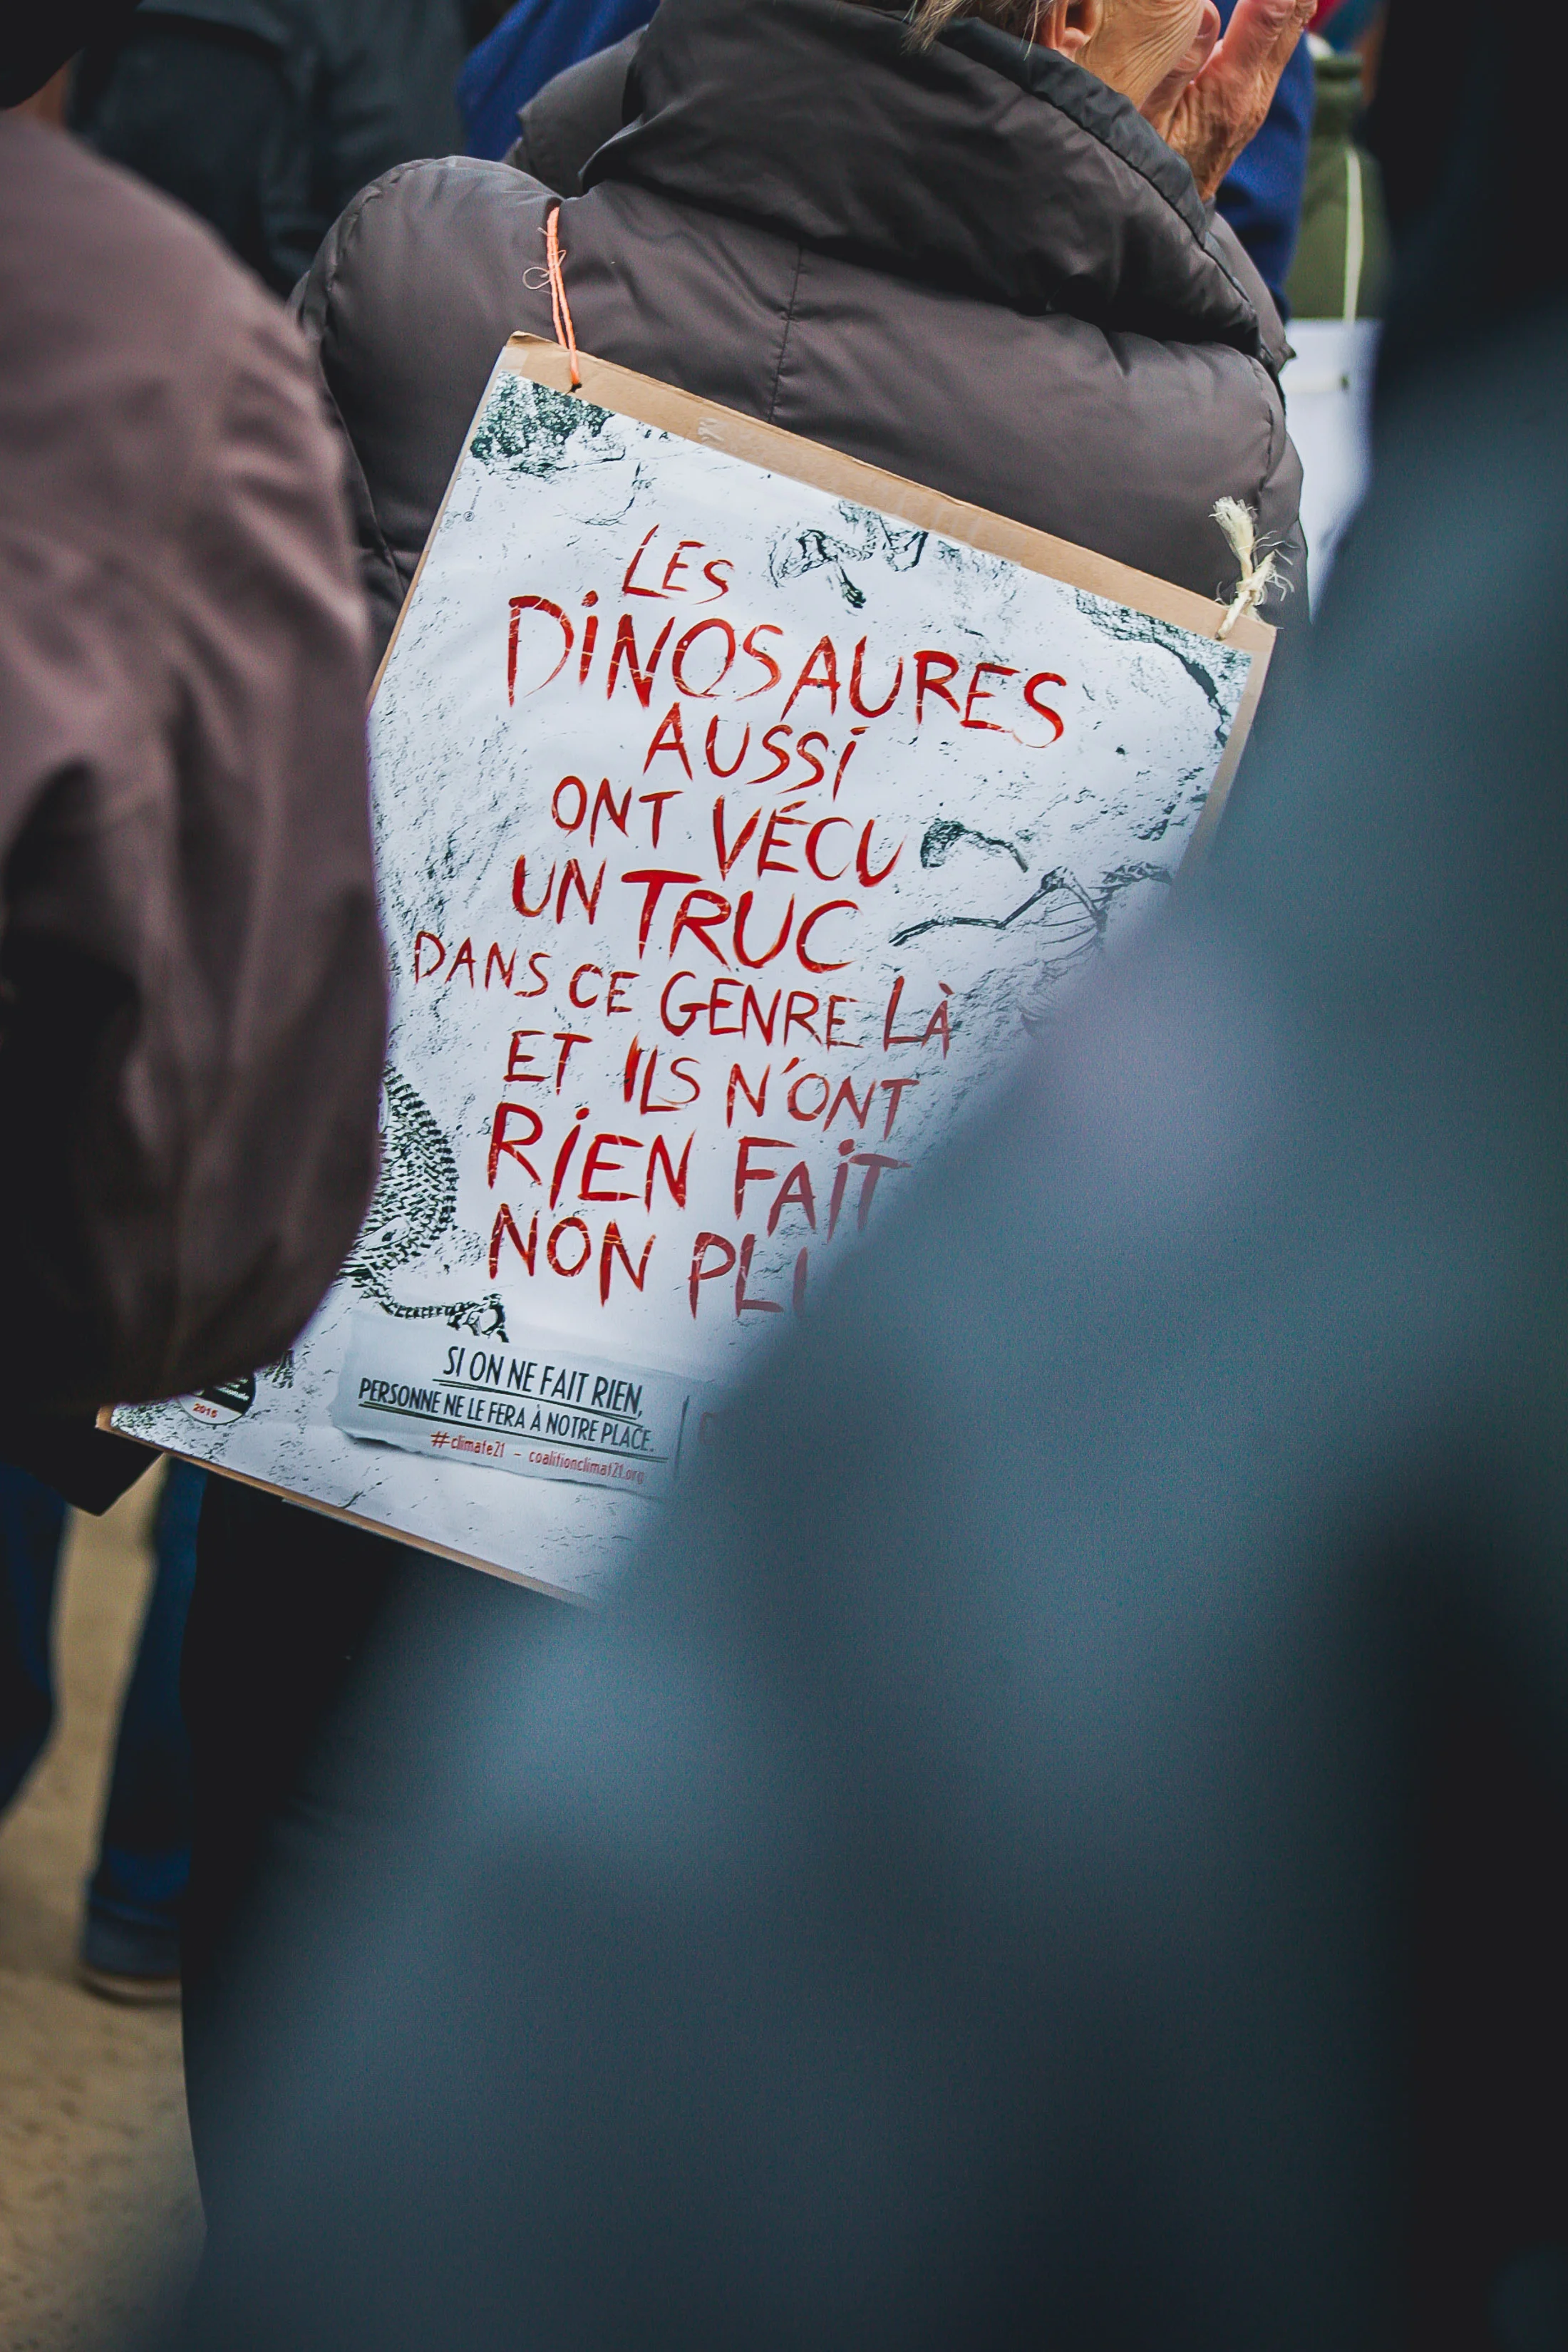 LES
DINOSAURES
AUSSI
ONT VÉCU
UN TRUC
DANS CE GENRE LÀ
ET ILS N'ONT
RIEN FAIT
NON
SI ON NE FAIT RIEN,
PERSONNE NE LE FERA À NOTRE PLACE.
#climate21 - coalitionclimat21.org
2015